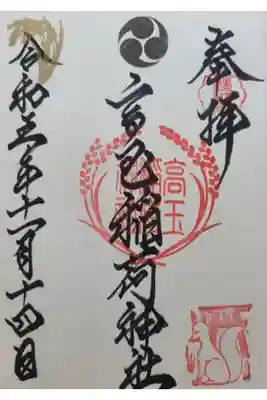 奉拝
高玉稲荷神社
令和五年十一月十四日